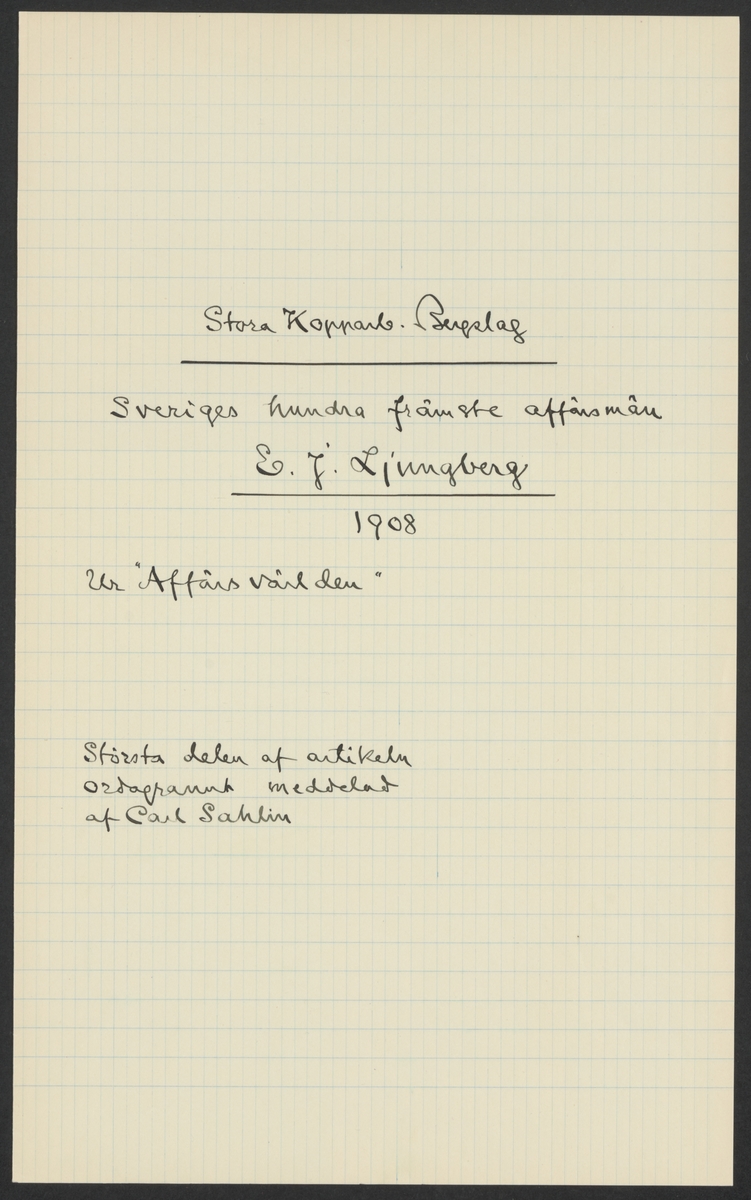 Stora Kopparb. Bergslag
Sveriges hundra främste affärsmän
E. J. Ljungberg
1908
Ur "Affärsvärlden"
Största delen af artikeln
ordagrannt meddelad
af Carl Sahlin